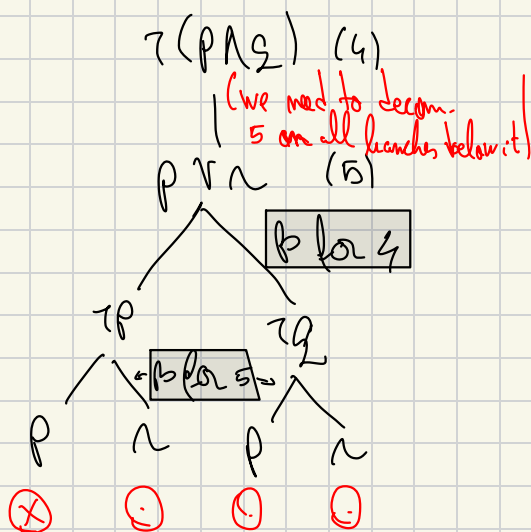 ¬(p∧q) (4)
(we need to decom.
5 on all branches below it)
p∨r (5)
β for 4
¬p ¬q
β for 5
p r p r